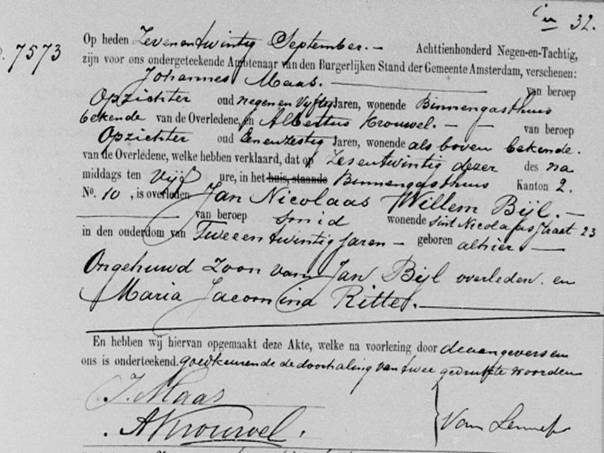 32.
7573
Op heden Zevenentwintig September.- Achttienhonderd Negen-en-Tachtig,
zijn voor ons ondergeteekende Ambtenaar van den Burgerlijken Stand der Gemeente Amsterdam, verschenen:
Johannes Maas.- van beroep
Opzichter oud negenenvijftig Jaren, wonende Binnengasthuis
bekende van de Overledene, en Albertus Krouwel.- van beroep
Opzichter oud Eenenzestig Jaren, wonende als boven bekende.
van de Overledene, welke hebben verklaard, dat op Zesentwintig dezer des na
middags ten Vijf ure, in het huis, staande Binnengasthuis Kanton 2.
No. 10, is overleden Jan Nicolaas Willem Bijl.-
van beroep Smid wonende Sint Nicolaasstraat 23
in den ouderdom van Tweeentwintig Jaren- geboren alhier-
Ongehuwd Zoon van Jan Bijl overleden. en
Maria Jacomina Ritter.
En hebben wij hiervan opgemaakt deze Akte, welke na voorlezing door de aangevers en
ons is onderteekend. goedkeurende de doorhaling van twee gedrukte woorden
J. Maas
A Krouwel. Van Lennep